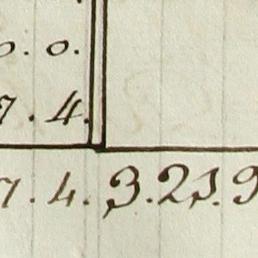 0.0.
7.4.
7.4.3.23.9